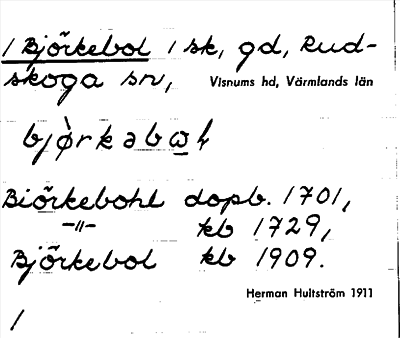 1 Björkebol 1 sk, gd, Rud-
skoga sn, Visnums hd, Värmlands län
bjø̀rkabɷ̲ɫ
Biörkebohl dopb. 1701,
-"- kb 1729,
Björkebol kb 1909.
Herman Hultström 1911
/